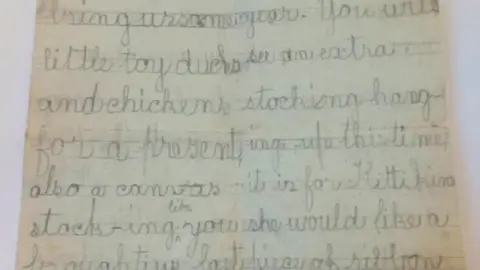 bring us some year. You will
little toy ducks see an extra
and chickens stockiong hang-
for a present, ing up this time,
also a canvas - it is for Kitti
stock-ing, like you she would like a
brought us last piece of ribbon